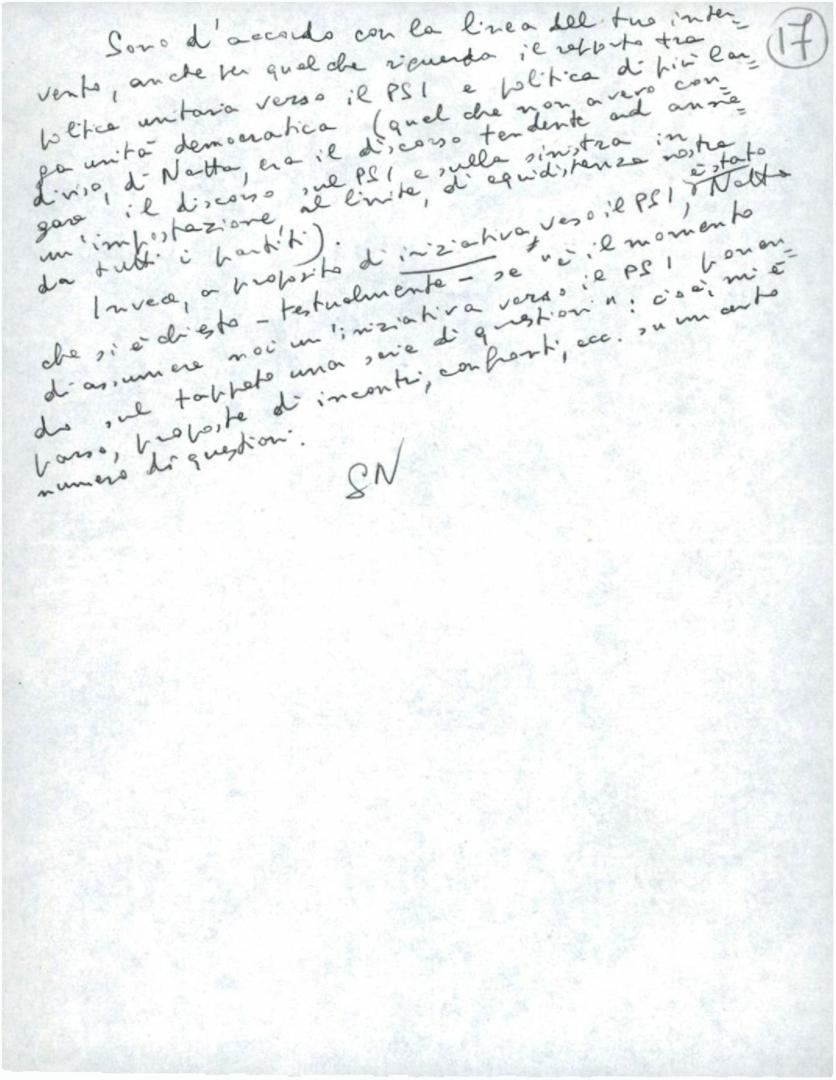 17
Sono d'accordo con la linea del tuo inter=
vento, anche per quel che riguarda il rapporto tra
politica unitaria verso il PSI e politica di più lar=
ga unità democratica (quel che non avevo con=
diviso, di Natta, era il discorso tendente ad anne=
gare il discorso sul PSI e sulla sinistra in
un'impostazione, al limite, di equidistanza nostra
da tutti i partiti).
Invece, a proposito di iniziativa verso il PSI, è stato Natta
che si è chiesto - testualmente - se "è il momento
di assumere noi un'iniziativa verso il PSI ponen=
do sul tappeto una serie di questioni": cioè, mi è
parso, proposte di incontri, confronti, ecc. su un certo
numero di questioni.
SN